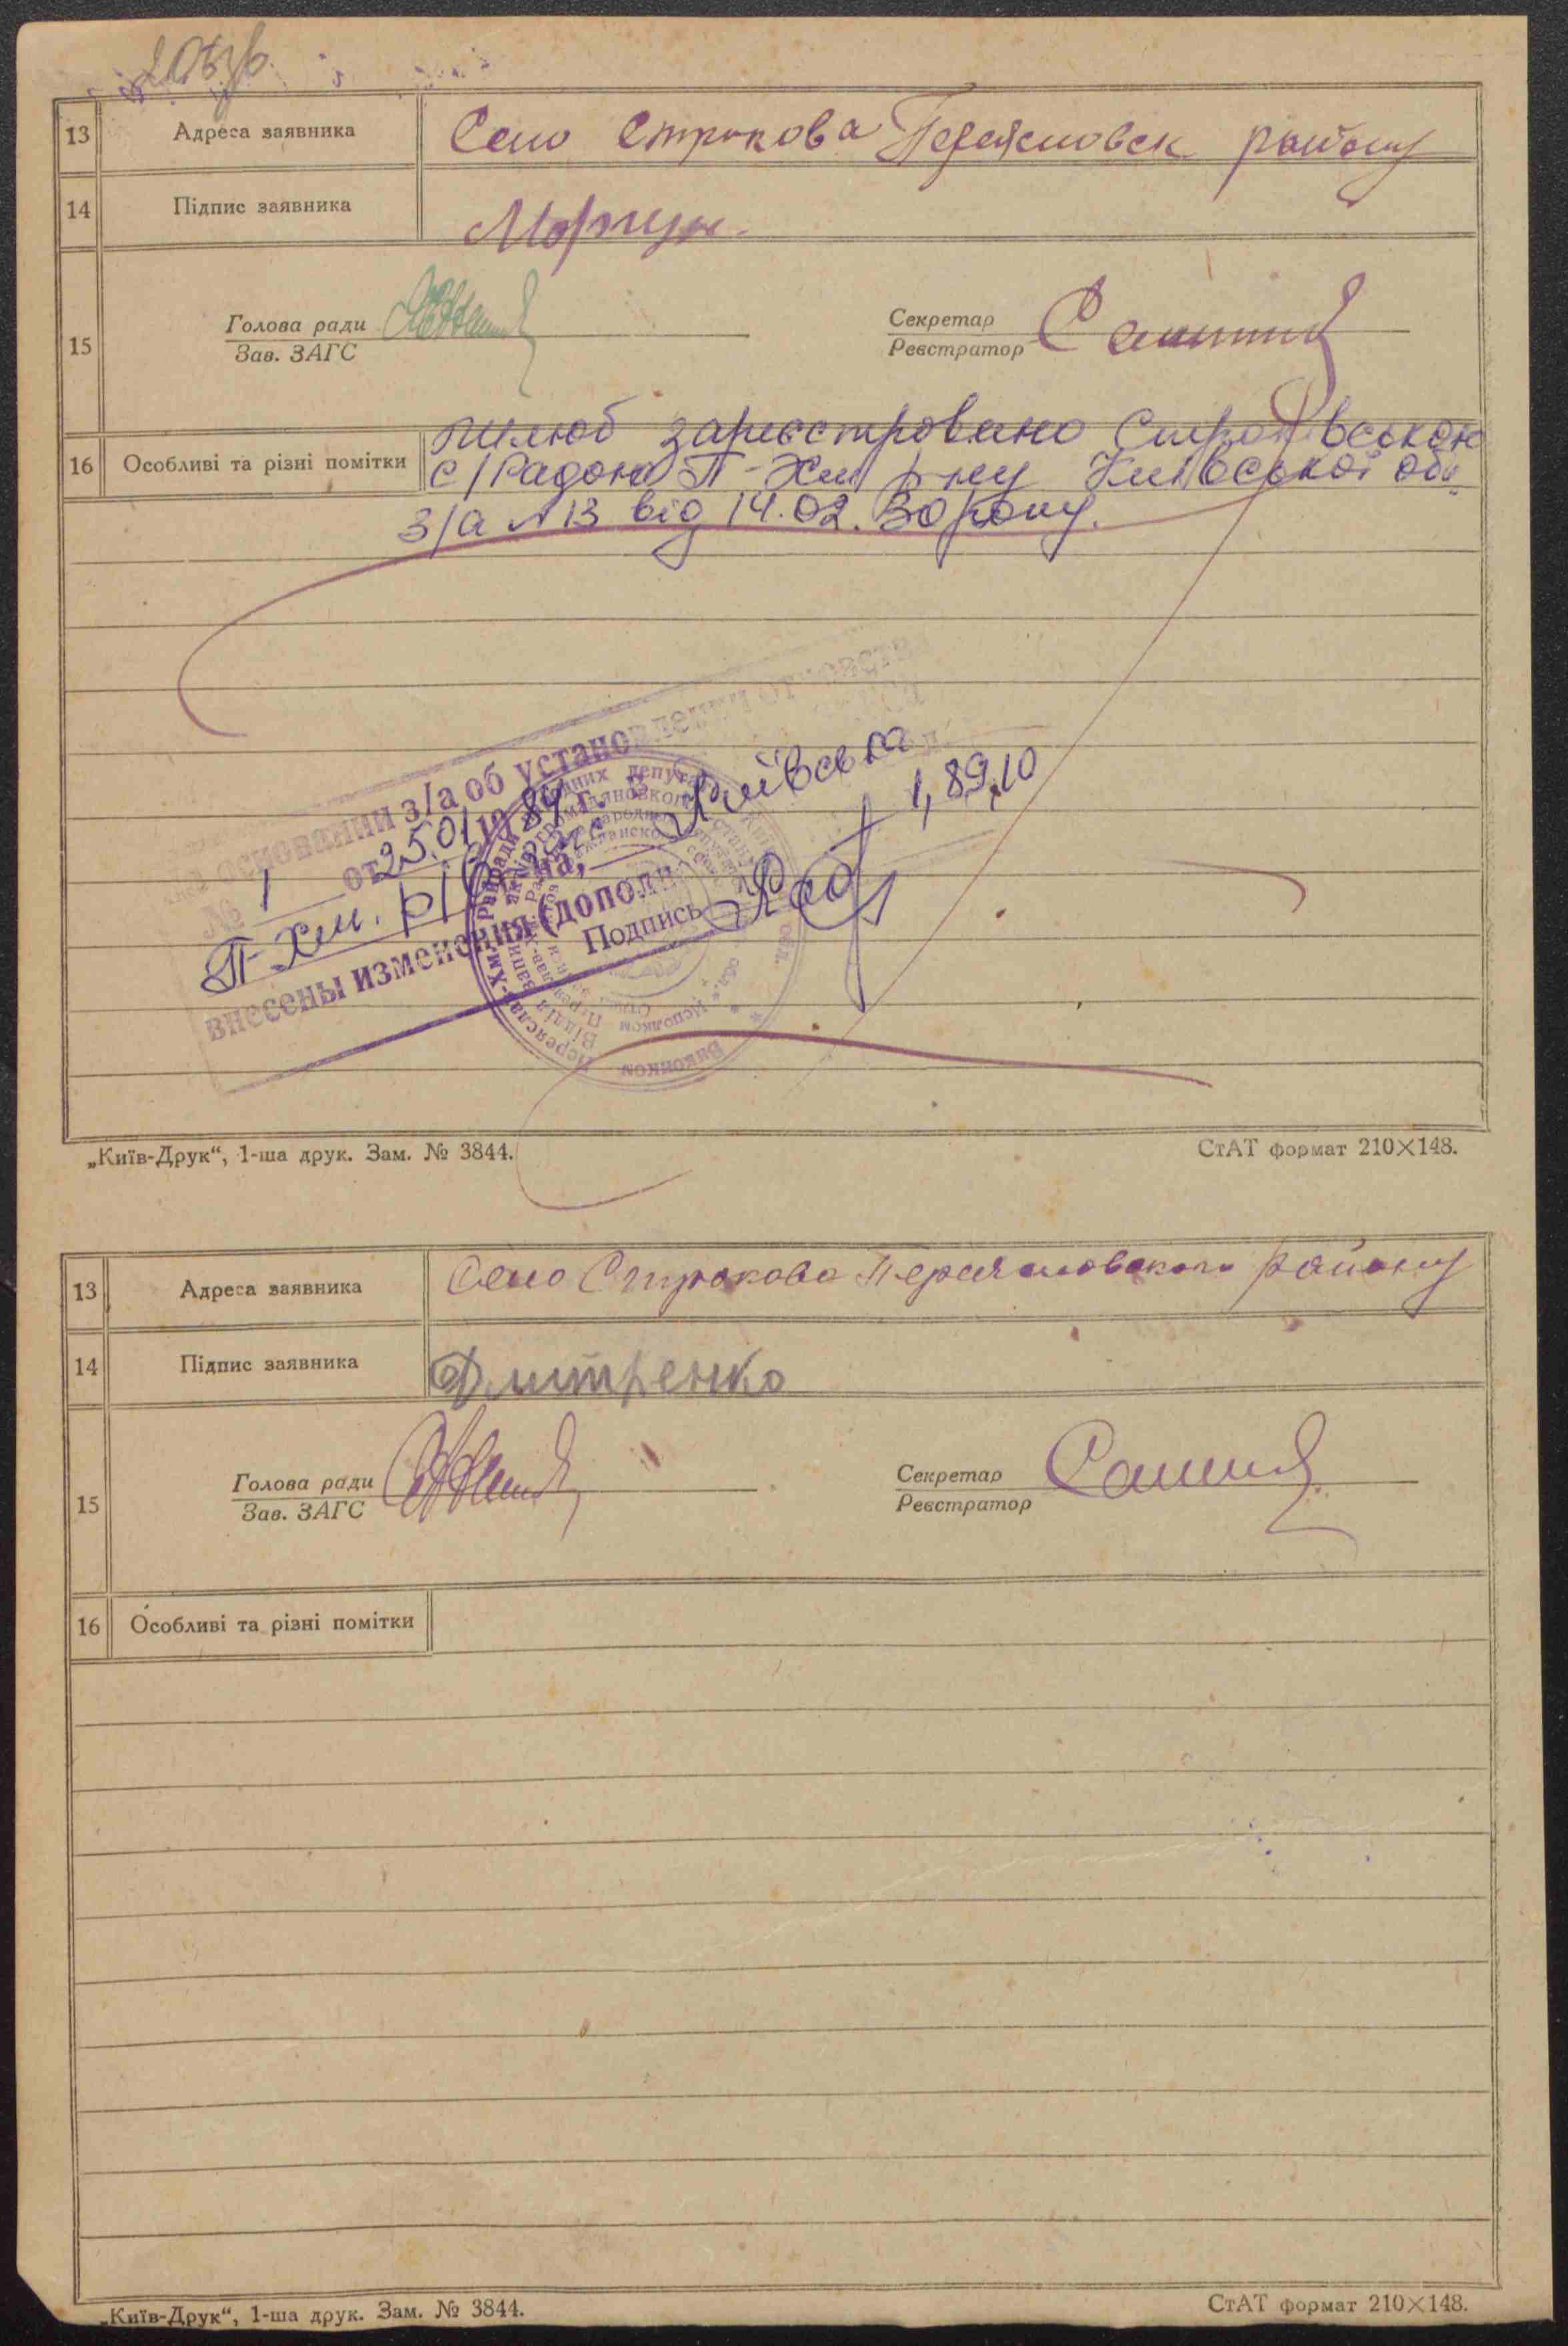 13 Адреса заявника Село Строкова Переясловск району
14 Підпис заявника Моргун.
15 Голова ради
Зав. ЗАГС
Секретар
Реєстратор
16 Особливі та різні помітки шлюб зареєстровано
с/Радою П-Хм р-ну Київської обл.
З/а №13 від 14.02. 30 року.
на основании з/а об установлении отцовства
№ 1 от 25.01.1984 г.
П-Хм. р/ Київська
внесены изменения (дополн
Подпись
„Київ-Друк“, 1-ша друк. Зам. № 3844. СтАТ формат 210×148.
13 Адреса заявника Село Строкова Переясловского району
14 Підпис заявника Дмитренко
15 Голова ради
Зав. ЗАГС
Секретар
Реєстратор
16 Особливі та різні помітки
„Київ-Друк“, 1-ша друк. Зам. № 3844. СтАТ формат 210×148.